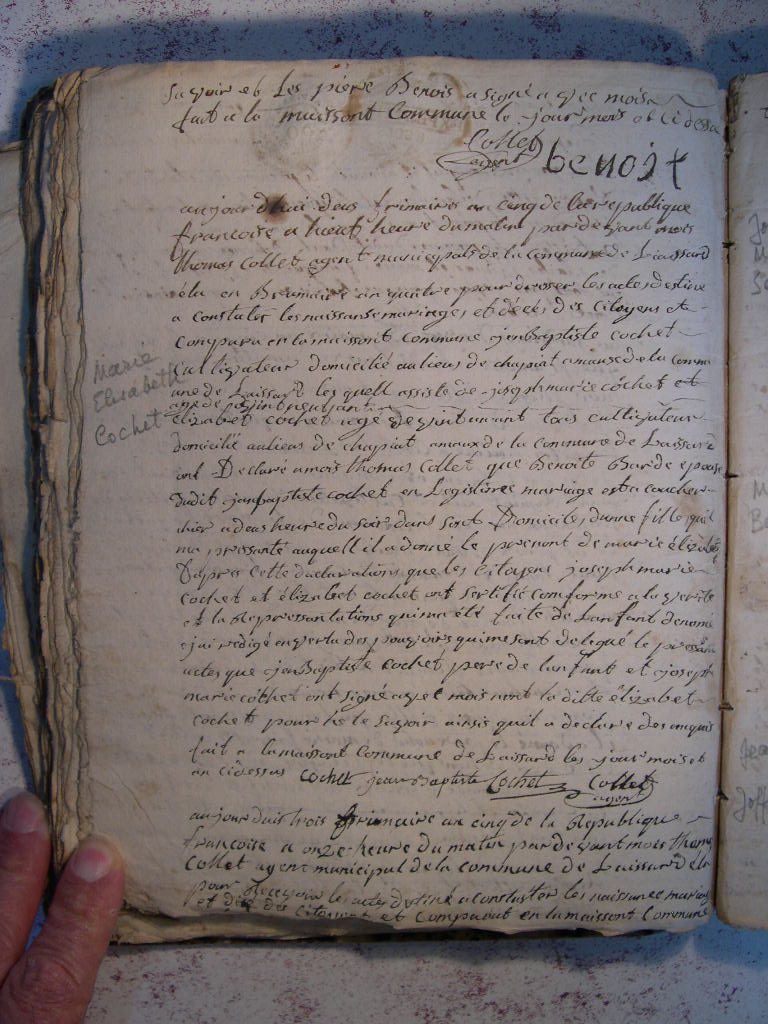 savoir et les pierre Benois a signé avec mois
fait a la maissont Commune le jour mois et cidessu
Collet
agent
benoist
aujourdhui deus frimaire an cinq de la republique
francoise a hieut heure du matin par devant mois
thomas Collet agent municipal de la commune de Laissard
élu en Brumaire an quatre pour dresser les actes destine
a constater les naissanse mariages et décés des citoyens et
Comparu en la maissont commune jan Baptiste cochet
Cultivateur domicilié au liens de chapiat amause de la comm
une de Laissard les quell assiste de joseph marie cochet et
age de vint neuf ant
élizabet cochet agé de vint un ant tous cultivateur
domicilié au liens de chapiat amaux de la commune de Laissard
ont Declaré a mois thomas Collet que Benoite Barde epouse
dudit jan baptiste cochet en Legislime mariage est acoucher
hier a deus heure du soir dans son Domicile dunne fille quil
ma pressanté auquell il a donné le prenont de marie élizabet
Dapres cette daclarations que les citoyens joseph marie
cochet et élizabet cochet ont sertifié comforme a la verite
et la Repressantations qui ma été faite de Lanfant denomé
jai redigé en vertu des pouvoirs qui me sont delegué le pressan
actes que jan Baptiste cochet pere de lanfant et joseph
marie cothet ont signé avet mois nont la ditte élizabet
cochet pour ne le savoir ainsis quil a declare des anquis
fait a la maissont commune de Laissard les jour mois et
an cidessus cochet jean Baptiste Cochet Collet
agent
aujourduit trois frimaire an cinq de la Republique
francoise a onze heure du matin par devant mois thomas
Collet agent municipal de la commune de Laissard élu
pour Recevoir les actes destiné a constater les naissance mariag
et désé des Citoyent et Comparut en la maissont Commune
Marie
Elisabeth
Cochet